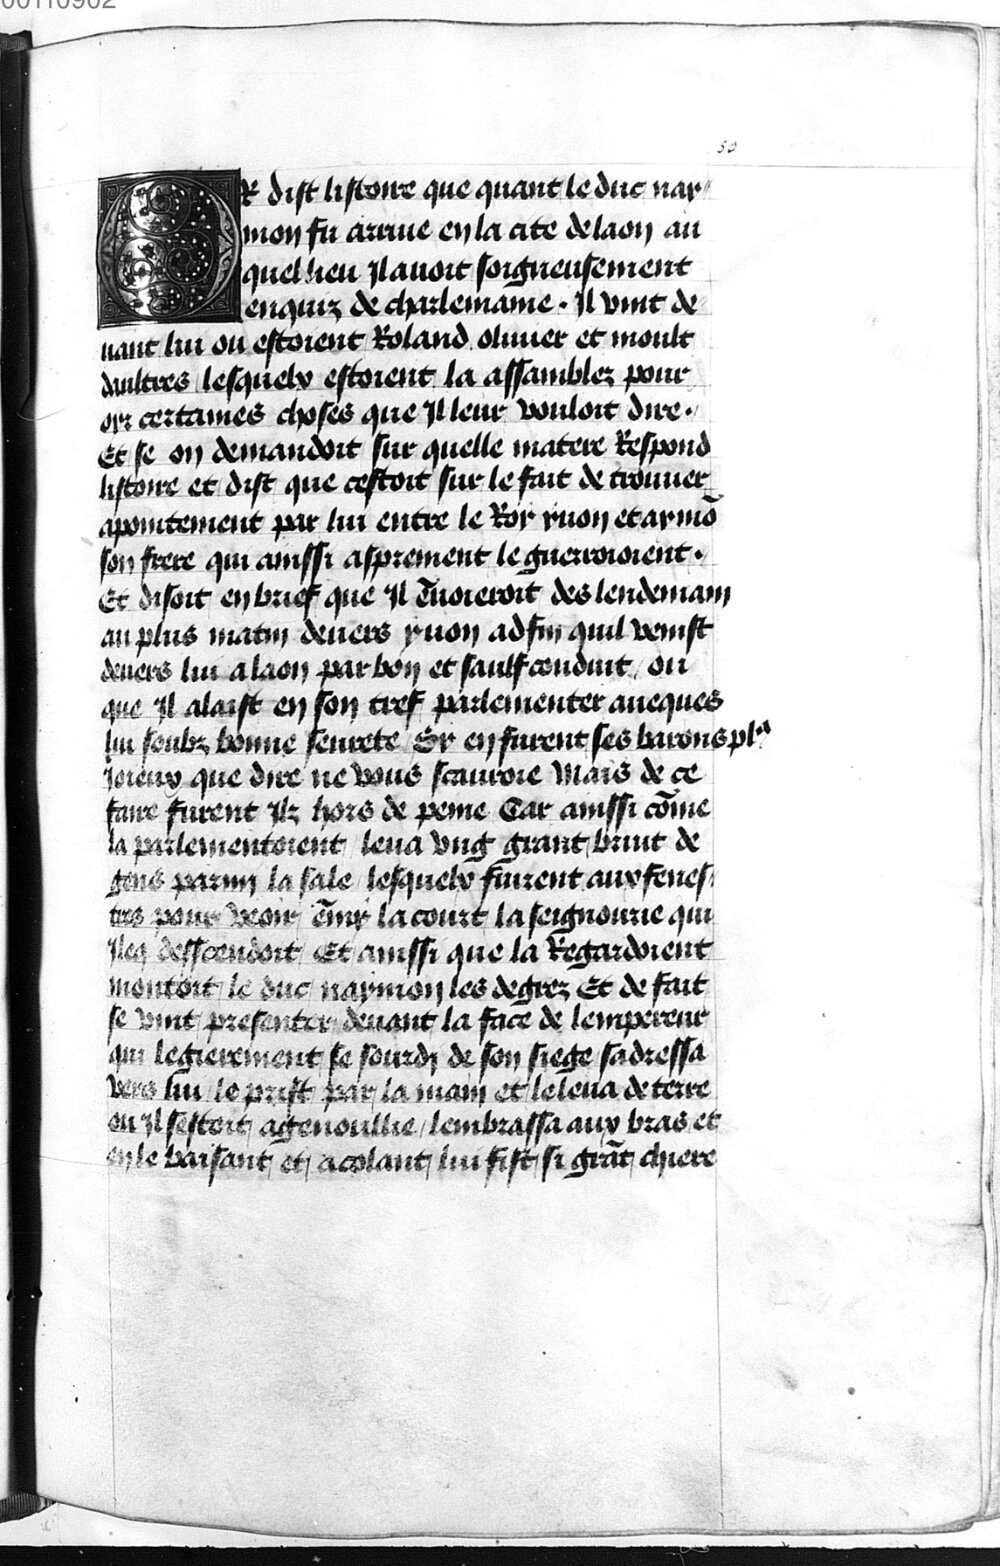 00110902
50
OR dist listoire que quant le duc nay-
mon fu arriue en la cite de laon au
quel lieu Il auoit soigneusement
enquiz de charlemaine. Il vint de-
uant lui ou estoient Roland oliuier et moult
daultres lesquelx estoient la assamblez pour
oyr certaines choses que Il leur vouloit dire.
Et se on demandoit sur quelle matere Respond
listoire et dist que cestoit sur le fait de trouuer
apointement par lui entre le Roy yuon et aymō
son frere qui ainssi asprement le guerroioient.
Et disoit en brief que Il ēuoieroit des lendemain
au plus matin deuers yuon ad fin quil venist
deuers lui a laon par bon et saulf conduit ou
que Il alaist en son tref parlementer auecques
lui soubz bonne seurete Sy en furent ses barons pls
Joieux que dire ne vous scauroie Mais de ce
faire furent Ilz hors de peine Car ainssi cōme
la parlementoient leua vng grant bruit de
gens parmi la sale lesquelx fuirent aux fenes-
tres pour veoir ēmy la court la seignourie qui
Ileq desscendoit Et ainssi que la Regardoient
montoit le duc naymon les degrez Et de fait
se vint presenter deuant la face de lempereur
qui legierement se sourdy de son siege sadressa
vers lui le prist par la main et le leua de terre
ou Il sestoit agenoullie lembrassa aux bras et
en le baisant et acolant lui fist si grāt chiere